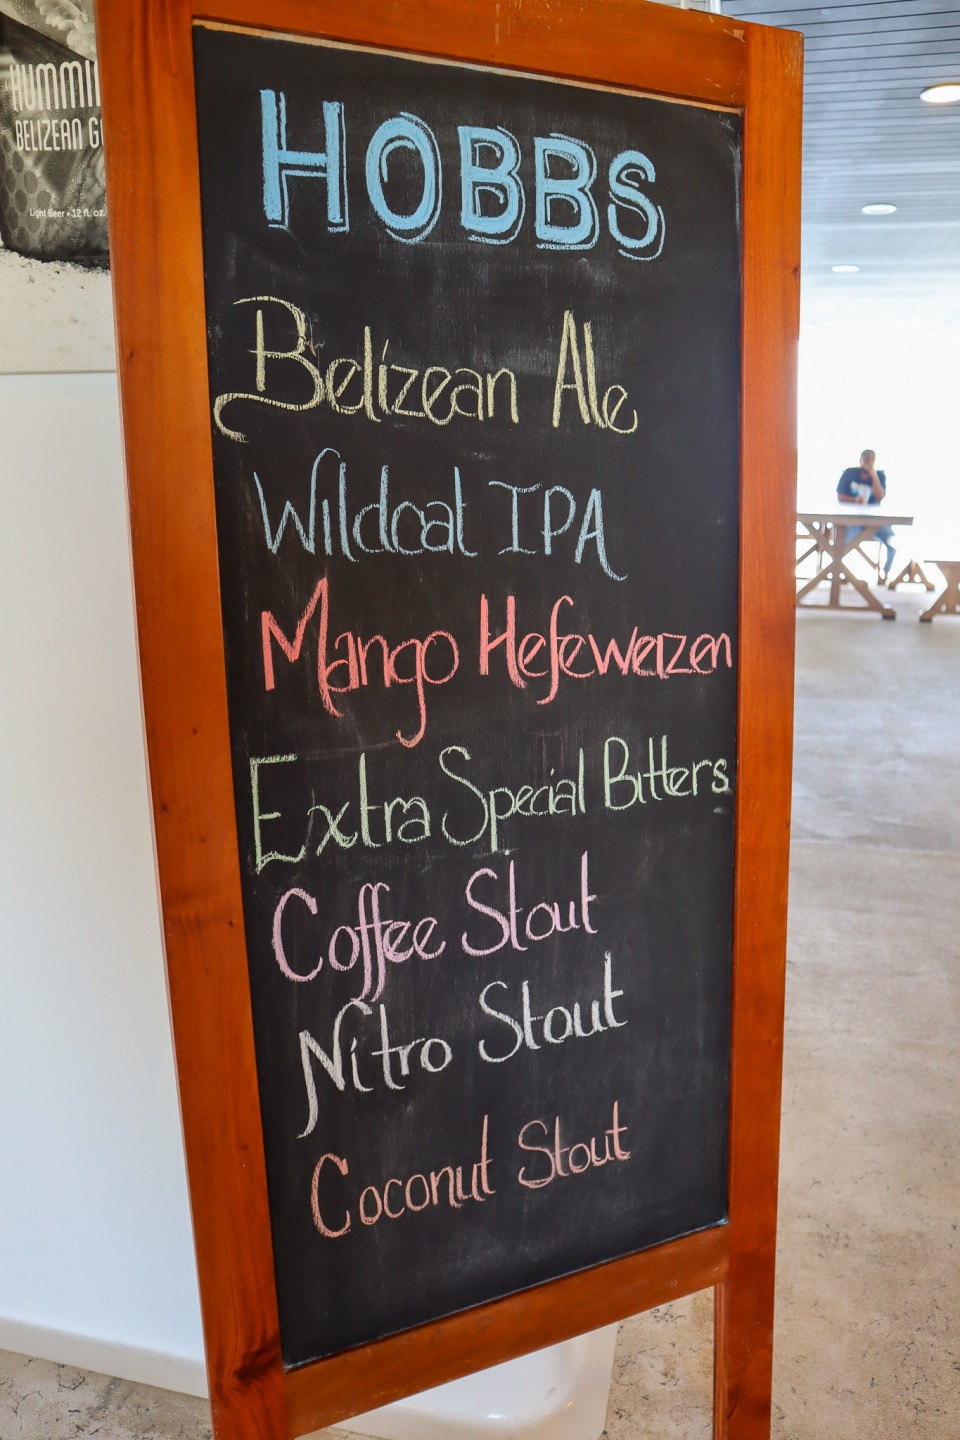 HUMMI
BELIZEAN G
Light Beer • 12 fl. oz.
HOBBS
Belizean Ale
Wildcat IPA
Mango Hefeweizen
Extra Special Bitters
Coffee Stout
Nitro Stout
Coconut Stout